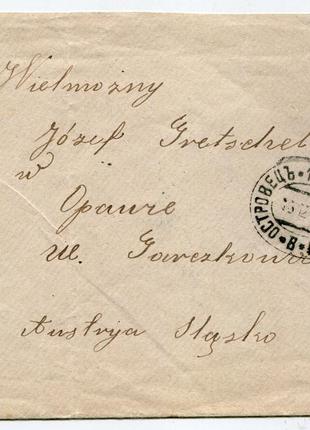 Wielmożny
Józef Gretschel
w
Opawie
ul.
Austrija Śląsko
ОСТРОВЕЦЪ